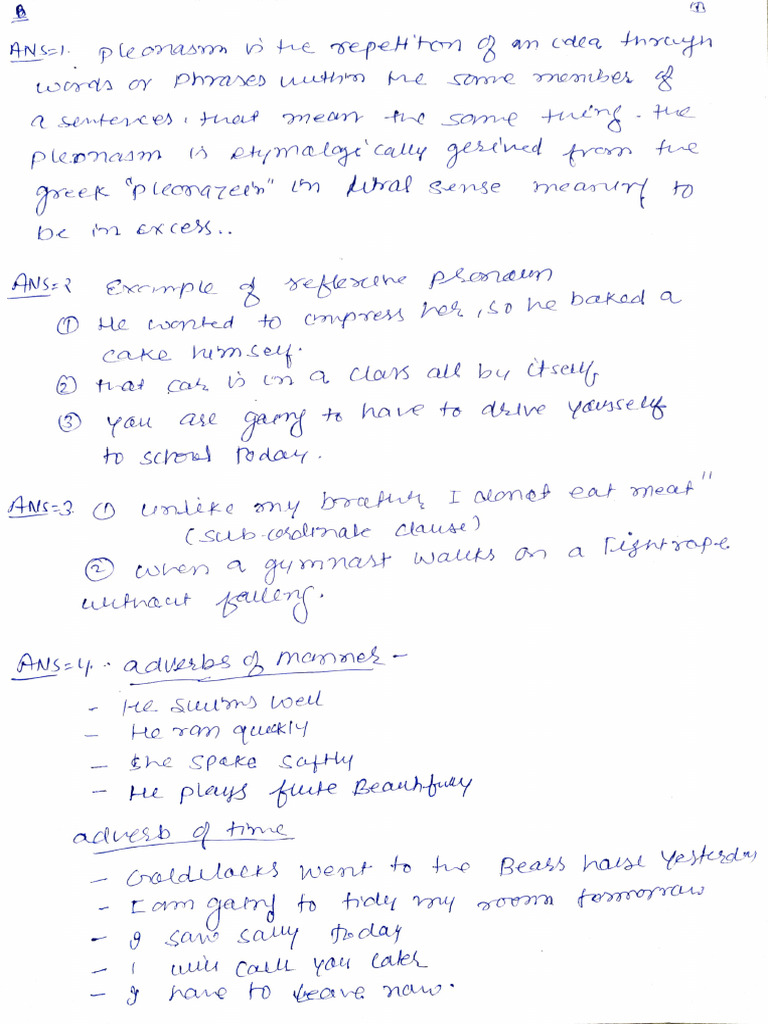 B
①
ANS=1. Pleonasm is the repetition of an idea through
words or phrases within the same member of
a sentences, that mean the same thing. the
pleonasm is etymologically gerived from the
greek "pleonazein" in litral sense meaning to
be in excess..
ANS=2 Example of reflexcive pronoun
① He wanted to impress her, so he baked a
cake himself.
② that car is in a class all by itself
③ you are going to have to drive yourself
to school today.
ANS=3. ① unlike my brother, I donot eat meat"
(sub-cordinate clause)
② when a gymnast walks on a Tightrope
without falling.
ANS=4. adverbs of manner -
- He swims well
- He ran quickly
- she spoke softly
- He plays flute Beautifully
adverb of time
- Goldilocks went to the Bears house yesterday
- I am going to tidy my room tomorrow
- I saw sally today
- I will call you later
- I have to leave now.